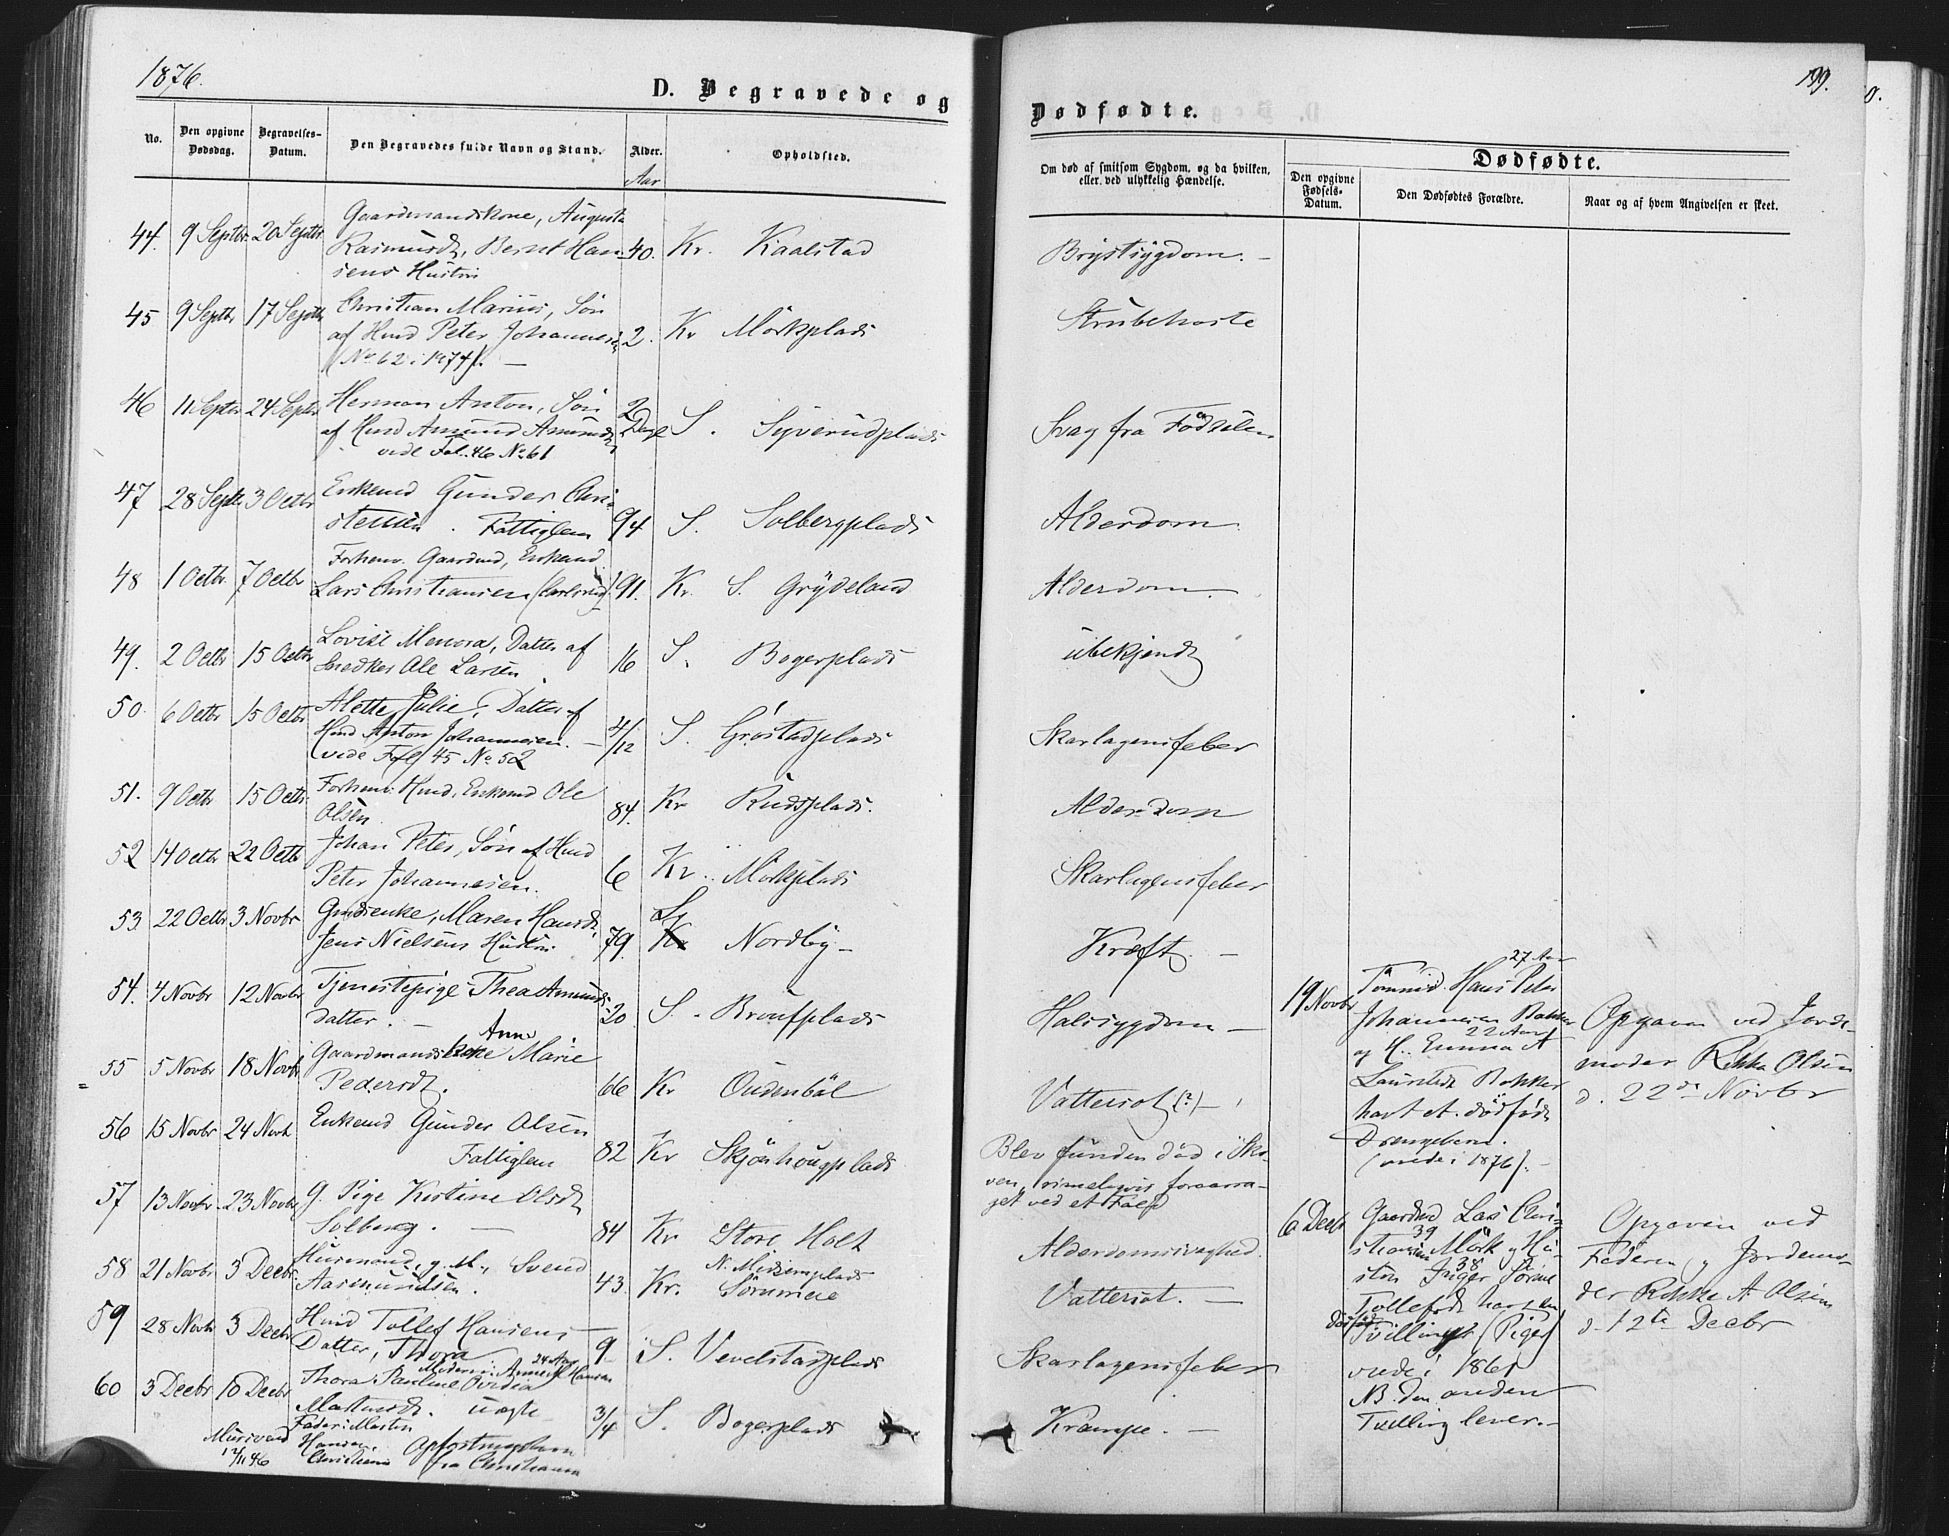 1876.
D. Begravede og
No.
Den opgivne Dødsdag.
Begravelses-Datum.
Den Begravedes fulde Navn og Stand.
Alder.
Aar
Opholdsted.
44. 9 Septbr. 20 Septbr. Gaardmandskone, Augusta
Rasmusdt, Bernt Han- 40. Kr. Kaalstad
sens Hustru
45 9 Septbr 17 Septbr Christian Marius, Søn
af Hmd Peter Johannes 2. Kr Mörkplads
(No 62 i 1874). —
46 11 Septbr 24 Septbr Herman Anton, Søn 2
af Hmd Amund Amunds Dage S. Syverudplads
vide Fol. 46 No 61
47 28 Septbr 3 Octbr Enkemd Gunder Chri-
stensen. Fattiglem 94 S. Solbergplads
Forhenv. Gaardmd, Enkemd
48 1 Octbr 7 Octbr Lars Christiansen 91. Kr. S. Grydeland
49. 2 Octbr 15 Octbr Lovise Menora, Datter af
Snedker Ole Larsen 16 S. Bogerplads
50. 6 Octbr 15 Octbr Alette Julie, Datter af
Hmd Anton Johannesen. — 4/12 S. Gröstadplads
vide Fol 45 No 52
51. 9 Octbr 15 Octbr Forhenv. Hmd, Enkemd Ole
Olsen. 84. Kr Rudsplads.
52 14 Octbr 22 Octbr Johan Peter, Søn af Hmd
Peter Johannesen. 6 Kr. Mörkplads
53. 22 Octbr 3 Novbr Gmdsenke, Maren Hansdt,
Jens Nielsens Hustru 79. Kr Nordby —
54. 4 Novbr 12 Novbr Tjenestepige Thea Amunds-
datter. — 20 S.
Anne
55 5 Novbr 18 Novbr Gaardmandskone Marie
Pedersdt. 66 Kr Oudenböl
56 15 Novbr 24 Novb Enkemd Gunder Olsen
Fattiglem 82 Kr Skjönhougplads
57 13 Novbr 23 Novbr g. Pige Kirstine Olsdt
Solberg. — 84 Kr Store Holt
58 21 Novbr 3 Decbr Husmand, g. M., Svend N. Midsemplads
Aasmundsen. 43. Kr. Sörumeie
59 28 Novbr 3 Decbr Hmd Tollef Hansens
Datter, Thora 9 S. Vevelstadplads
24 Aar
60 3 Decbr 10 Decbr Thora Pauline Ovidia
Martinsdt. uægte 3/4 S. Bogerplads
Fader: Martin
Hansen,
Christiania
Opfostringsbarn
fra Christiania
199.
Dødfødte.
Om død af smitsom Sygdom, og da hvilken, eller ved ulykkelig Hændelse.
Dødfødte.
Den opgivne Fødsels-Datum.
Den Dødfødtes Forældre.
Naar og af hvem Angivelsen er skeet.
Brystsygdom. —
Strubehoste
Svag fra Fødselen
Alderdom.
Alderdom.
ubekjendt
Skarlagensfeber
Alderdom
Skarlagensfeber
Kræft. —
Halssygdom —
Vattersot (?) —
Blev funden död i Sko-
ven, rimeligvis foraarsa-
get ved et Fald
Alderdomssvaghed.
Vattersot. —
Skarlagensfeber
Krampe. —
27 Aar
19 Novbr Tømmd. Hans Peter
Johannesen Bakker
22 Aar
og H. Emma A
Lauritsdt Bakker
havt et dødfødt
Drengebarn.
(viede i 1876). —
Opgaven ved Jorde-
moder Rikka Olsen
d. 22de Novbr
6 Decbr Gaardmd Lars Chri-
39
stiansen Mörk og Hu-
38
stru Inger Sørine
Tollefsdt havt en
dödfød
Tvilling (Pige)
viede i 1861
NB. Den anden
Tvilling lever. —
Opgaven ved
Faderen og Jordemo-
der Rikke A Olsen
d. 12te Decbr